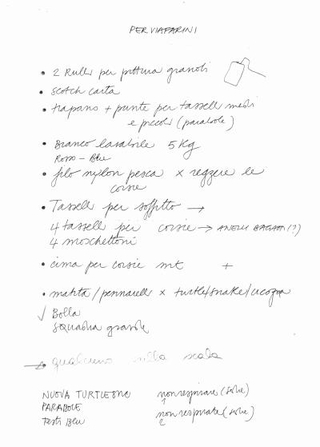 PER VIAFARINI
• 2 Rulli per pittura grandi
• Scotch carta
• trapano + punte per tasselli medi
e piccoli (parabole)
• Bianco lavabile 5 Kg
Rosso - Blue
• filo nylon pesca x reggere le
corsie
• Tasselli per soffitto →
4 tasselli per corsie →
4 moschettoni
• cima per corsie mt +
• matita / pennarelli x turtle/snake/cicogna
Bolla
squadra grande
qualcuno sulla scala
NUOVA TURTLE non respirare (solo)
PARABOLE
Testi Blu non respirate (solo)